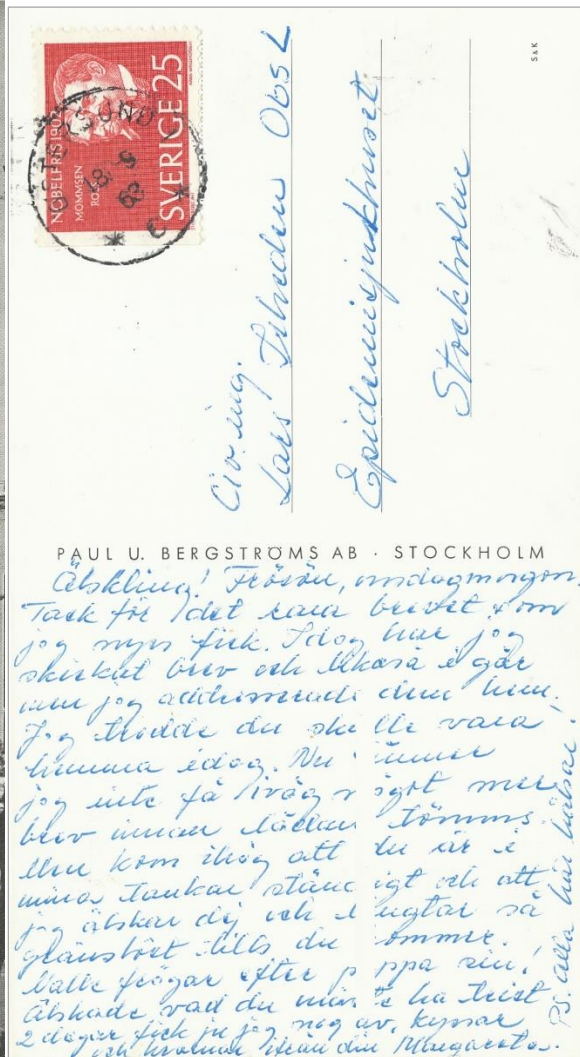 NOBELPRIS 190
MOMMSEN
RO
SVERIGE 25
SUND
18 9
62
S&K
Civ.ing.
Lars Obs L
Epidemisjukhuset
Stockholm
PAUL U. BERGSTRÖMS AB · STOCKHOLM
Älskling! Frösön, onsdagmorgon.
Tack för det rara brevet som
jog nyss fick. Idag har jog
skickat brev och likaså i går
men jog addresserade dem hem.
Jog trodde du sk lle vara
hemma idag. Nu inner
jog inte få iväg n ågot mer
brev innan lådan tömms.
Men kom ihåg att du är i
mina tankar ständ igt och att
jog älskar dej och l ngtar så
gränslöst tills du ommer.
Kalle frågar efter p ppa sin!
Älskade vad du mås te ha trist
2 dagar fick ju jog nog av, kyssar
och kramar från din Margareta.
Ps. alla här hälsar!